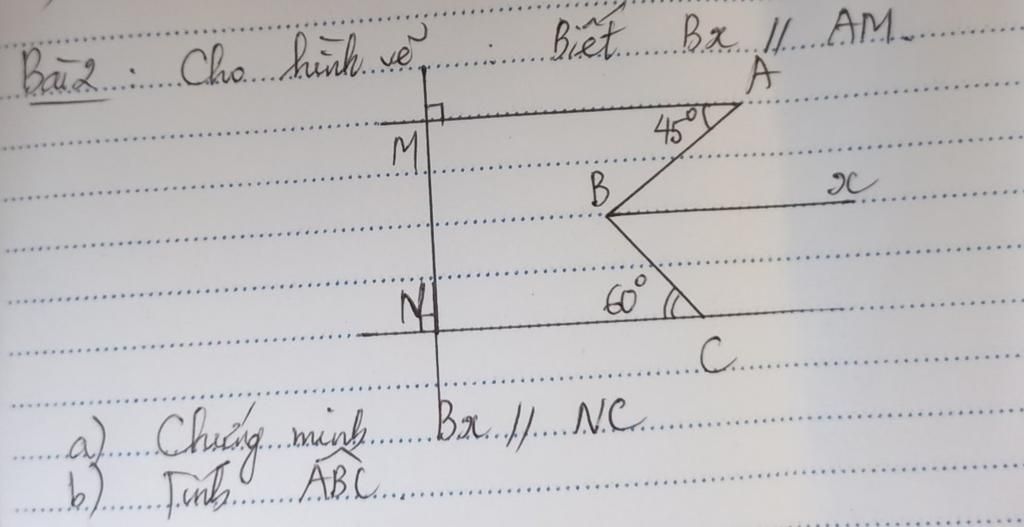 Bài 2 : Cho hình vẽ : Biết Bx // AM.
A
M
45°
B
x
N
60°
C
a) Chứng minh Bx // NC
b) Tính ABC.